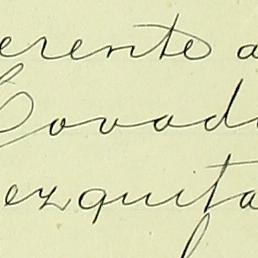 erente a
Covad
ezquita